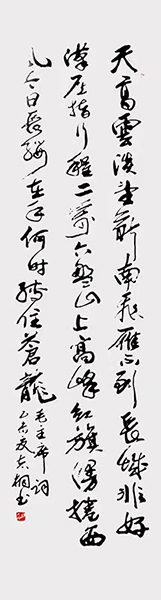 天高雲淡望断南飛雁不到長城非好
漢屈指行程二萬六盤山上高峰紅旗漫捲西
风今日長纓在手何时縛住蒼龍毛主席词
夏书